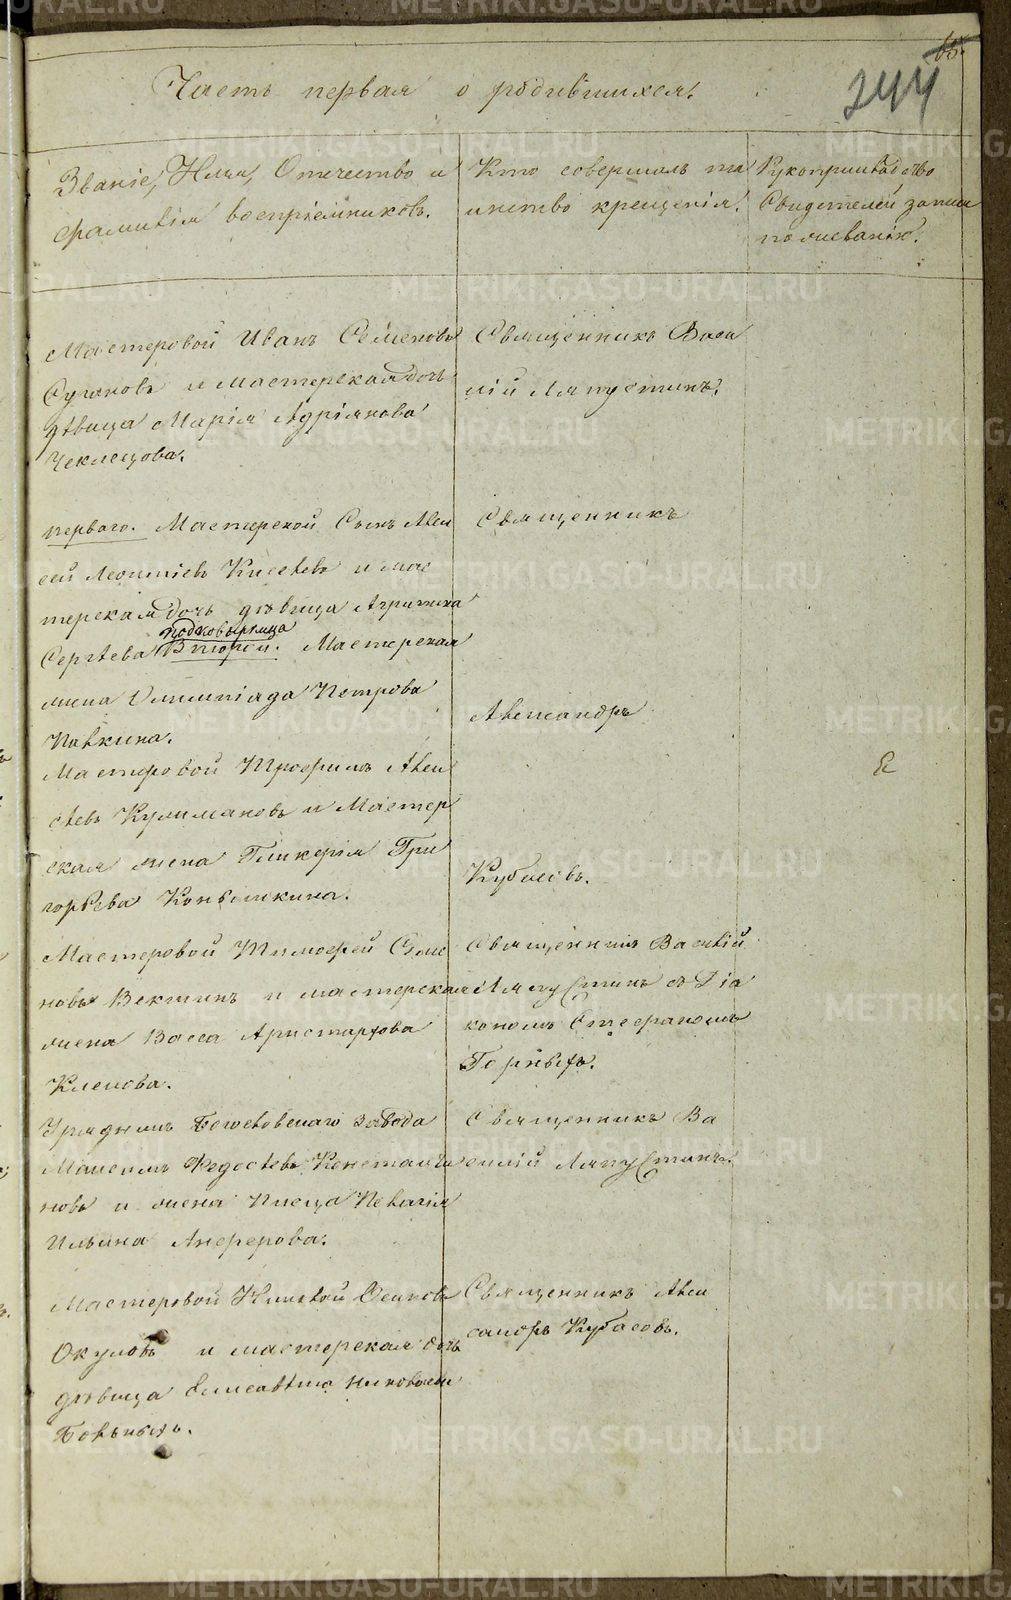 65.
244
Часть первая о родившихся.
Званіе, Имя, Отчество и
фамилія воспріемниковъ.
Кто совершалъ та
инство крещенія.
Рукоприкладство
Свидетелей записи
по желанію.
Мастеровой Иванъ Семеновъ
Сугановъ и мастерская дочь
девица Марія Адріянова
Чеклецова.
Священникъ Васи
лій Ляпустинъ.
перваго. Мастерской Сынъ Алек
сей Леонтіевъ Киселевъ и мас
терская дочь девица Агрипина
Сергеева
Второй. Мастерская
жена Олимпіада Петрова
Палкина.
Священникъ
Александръ
Кубасовъ.
Мастеровой Трофимъ Алек
сеевъ и Мастер
ская жена Гликерія Гри
горьева Конюшкина.
Мастеровой Тимофей Семе
новъ Векшинъ и мастерская
жена Васса Аристархова
Клепова.
Священникъ Василій
Ляпустинъ съ Діа
кономъ Стефаномъ
Горныхъ.
Урядникъ завода
Максимъ Федосеевъ Константи
новъ и жена писца Пелагія
Ильина Анферова.
Священникъ Ва
силій Ляпустинъ.
Мастеровой Николай Осиповъ
Окуловъ и мастерская дочь
девица Елисавета Николаева
Священникъ Алек
сандръ Кубасовъ.
METRIKI.GASO-URAL.RU